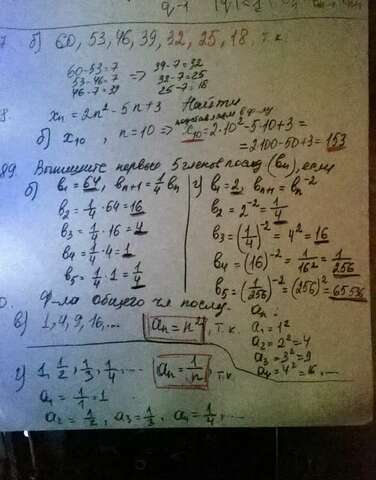 б) 60, 53, 46, 39, 32, 25, 18, т.к.
60-53=7 39-7=32
53-46=7 => 32-7=25
46-7=39 25-7=18
8. xn = 2n² - 5n + 3 Найти
подставляем в ф-лу
б) x10, n=10 => x10 = 2·10² - 5·10 + 3 =
= 2·100 - 50 + 3 = 153
89. Выпишите первые 5 членов послед (bn), если
б) b1 = 64, bn+1 = 1/4 bn г) b1 = 2, bn+1 = bn⁻²
b2 = 1/4 · 64 = 16 b2 = 2⁻² = 1/4
b3 = 1/4 · 16 = 4 b3 = (1/4)⁻² = 4² = 16
b4 = 1/4 · 4 = 1 b4 = (16)⁻² = 1/16² = 1/256
b5 = 1/4 · 1 = 1/4 b5 = (1/256)⁻² = (256)² = 65536
Ф-ла общего чл послед. an:
в) 1, 4, 9, 16, ... an = n², т.к. a1 = 1²
a2 = 2² = 4
a3 = 3² = 9
a4 = 4² = 16, ...
г) 1, 1/2, 1/3, 1/4, ... an = 1/n, т.к.
a1 = 1/1 = 1
a2 = 1/2, a3 = 1/3, a4 = 1/4, ...